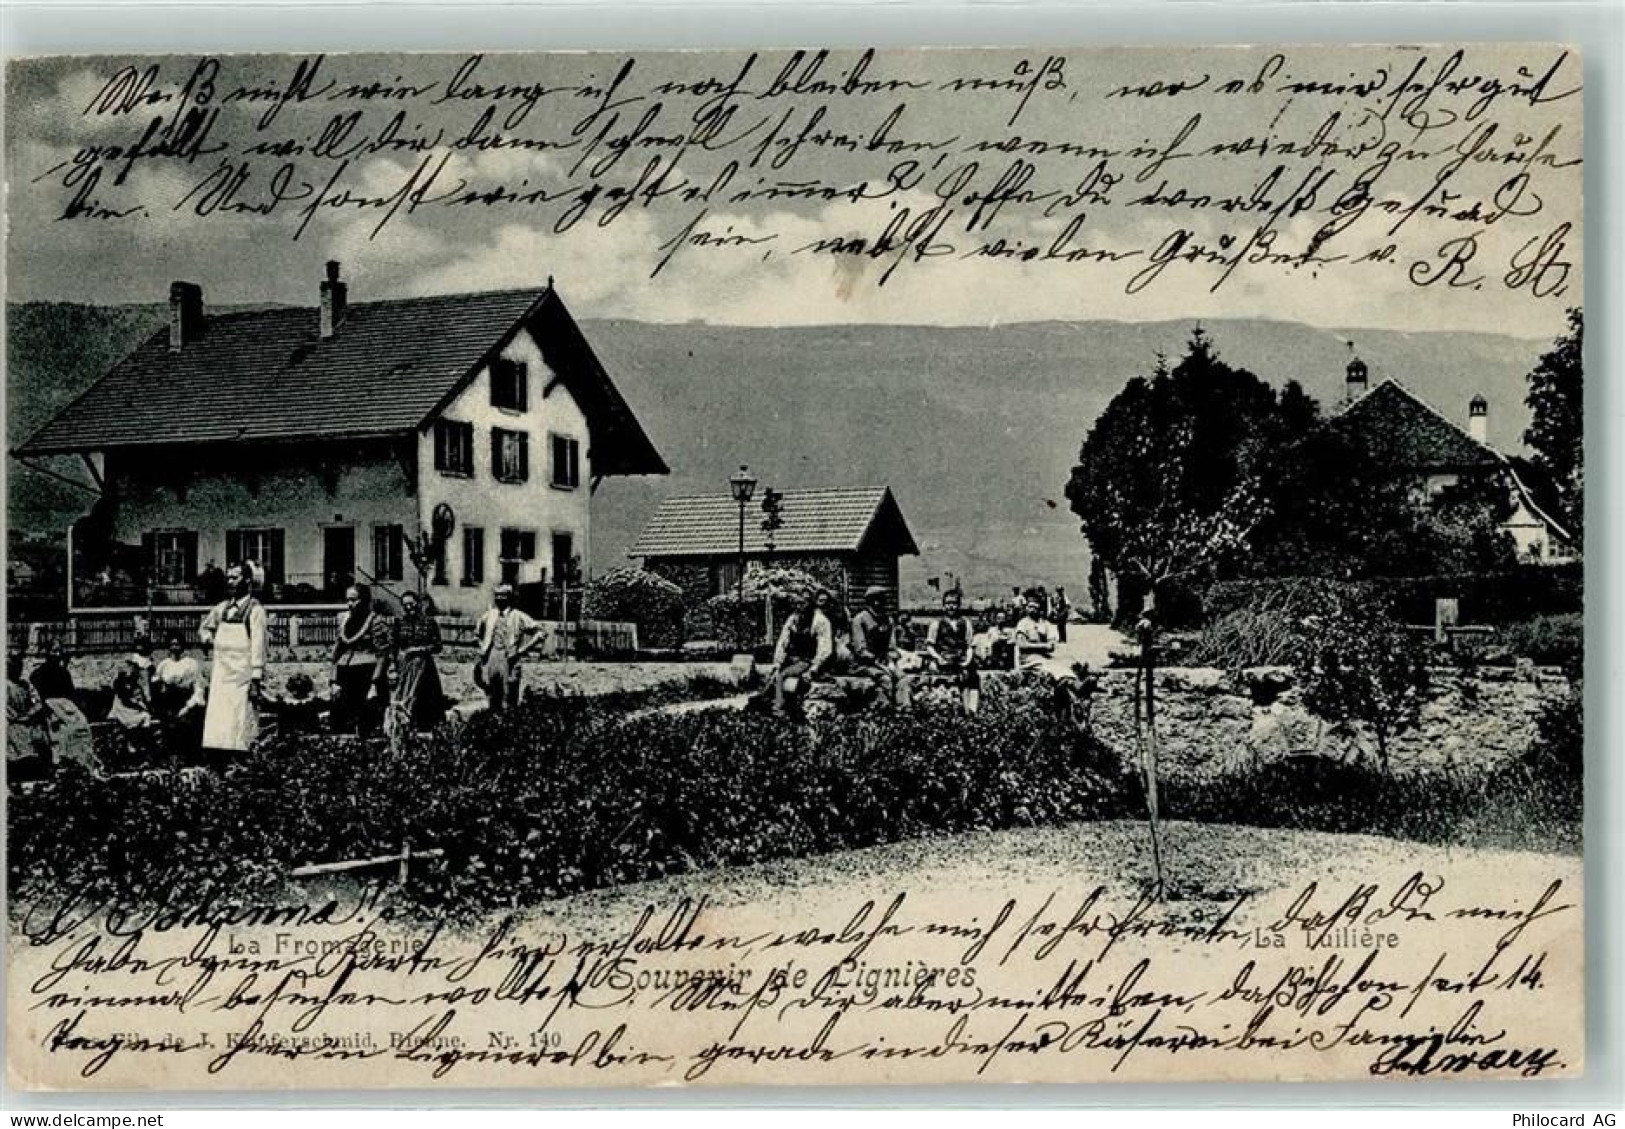 Weiß nicht wie lang ich noch bleiben muß, wo es mir sehr gut
gefällt, will dir dann schnell schreiben, wenn ich wieder zu Hause
bin. Und sonst wie geht es immer? Hoffe Du werdest Gesund
sein, nebst vielen Grüßen v. R. St.
L. Johanna!
La Fromagerie
La Tuilière
Habe deine Karte hier erhalten, welche mich sehr freute, daß Du mich
Souvenir de Lignières
einmal besuchen wolltest. Muß Dir aber mitteilen, daß ich schon seit 14.
de J. Kupferschmid, Bienne. Nr. 140
Tagen hier in Lignieres bin, gerade in dieser Käserei bei Familie
Schwarz.
Philocard AG